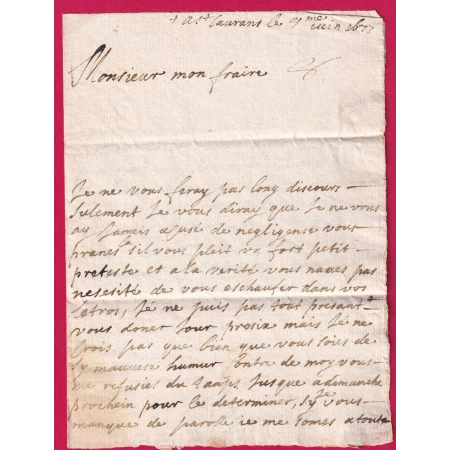 + a st laurans le 21me
juin 1677
Monsieur mon fraire
Je ne vous feray pas long discours
sulement Je vous diray que Je ne vous
ay Jameis acusé de negligense vous
prenes sil vous pleit un fort petit
preteste et a la verité vous naves pas
nesesité de vous eschaufer dans vos
letros, Je ne puis pas tout presant
vous doner Jour prosin mais Je ne
Crois pas que bien que vous soies de
sy mauvese humur contre de moy vous
me refusies du tanps Jusque a dimanche
prochein pour le determiner, sy Je vous
manque de parole ie me somes a toute